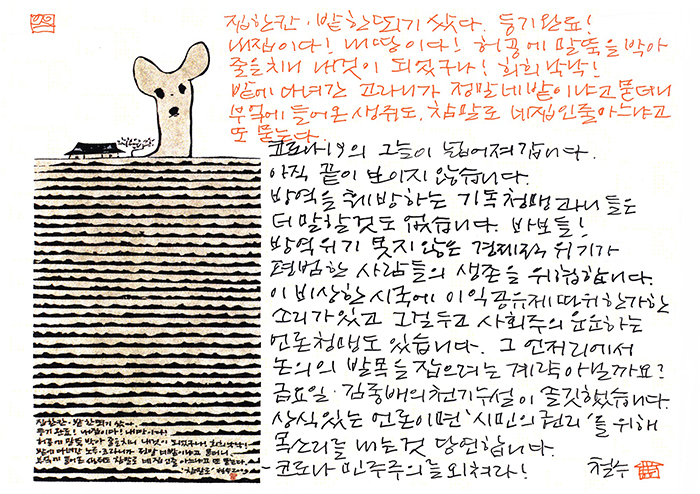 집한칸·밭한뙈기 샀다. 등기완료!
내집이다! 내땅이다! 허공에 말뚝을 박아
줄을치니 내것이 되었구나! 희희낙낙!
밭에 다녀간 고라니가 정말 네 밭이냐고 묻더니
부엌에 들어온 생쥐도, 참말로 네집인줄아느냐고
또 묻는다.
코로나19의 그늘이 넓어져갑니다.
아직 끝이 보이지 않습니다.
방역을 훼방하는 기독청맹과니들은
더 말할것도 없습니다. 바보들!
방역위기 못지않은 경제적 위기가
평범한 사람들의 생존을 위협합니다.
이 비상한 시국에 이익공유제 따위 한가한
소리가있고 그걸두고 사회주의 운운하는
언론청맹도 있습니다. 그 언저리에서
논의의 발목을 잡으려는 계략 아닐까요?
금요일·김중배의천기누설이 솔깃했습니다.
상식있는 언론이면 '시민의 권리'를 위해
목소리를 내는것 당연합니다.
-코로나 민주주의를 외쳐라! 철수
집한칸·밭한뙈기 샀다.
등기완료! 내집이다! 내땅이다!
허공에 말뚝 박아 줄을치니 내것이 되었구나 희희낙낙!
밭에 다녀간 노루·고라니가 정말 네밭이냐고 묻더니,
부엌에 들어온 생쥐도 참말로 네집인줄 아느냐고 또 묻는다.
참말로